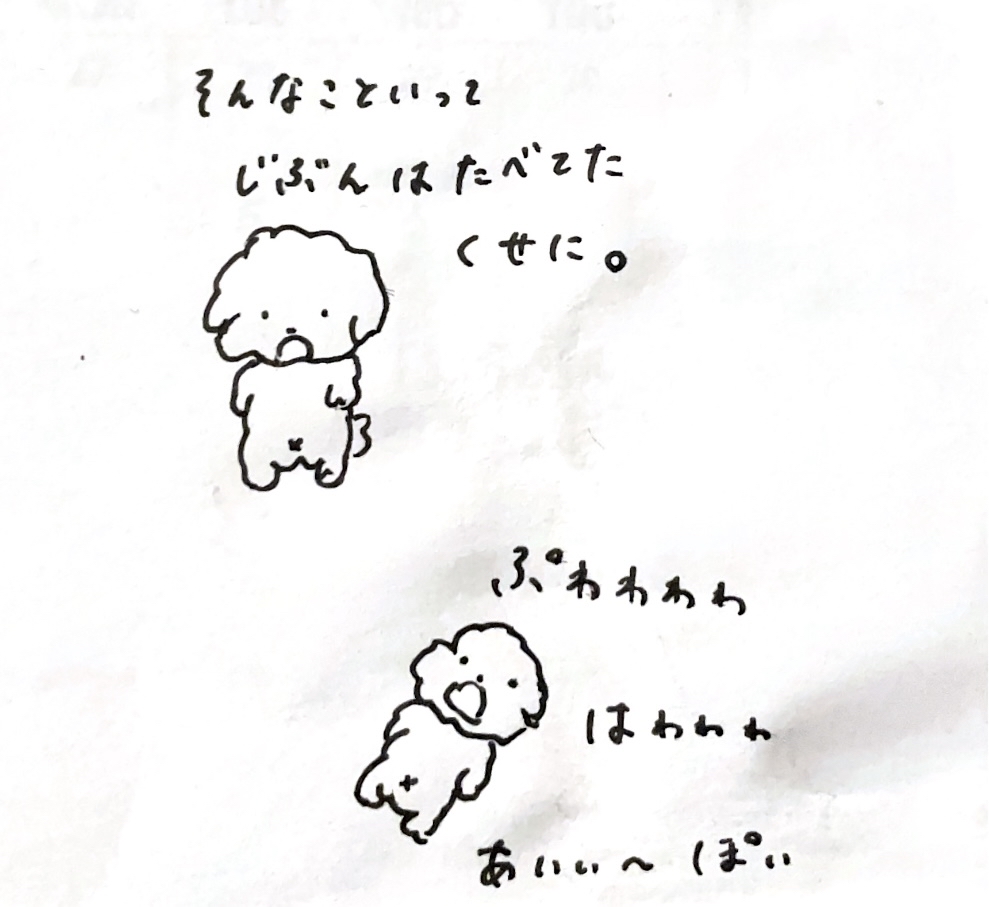 そんなこといって
じぶんはたべてた
くせに。
ぷわわわわ
はわわわ
あいぃ〜っぽい